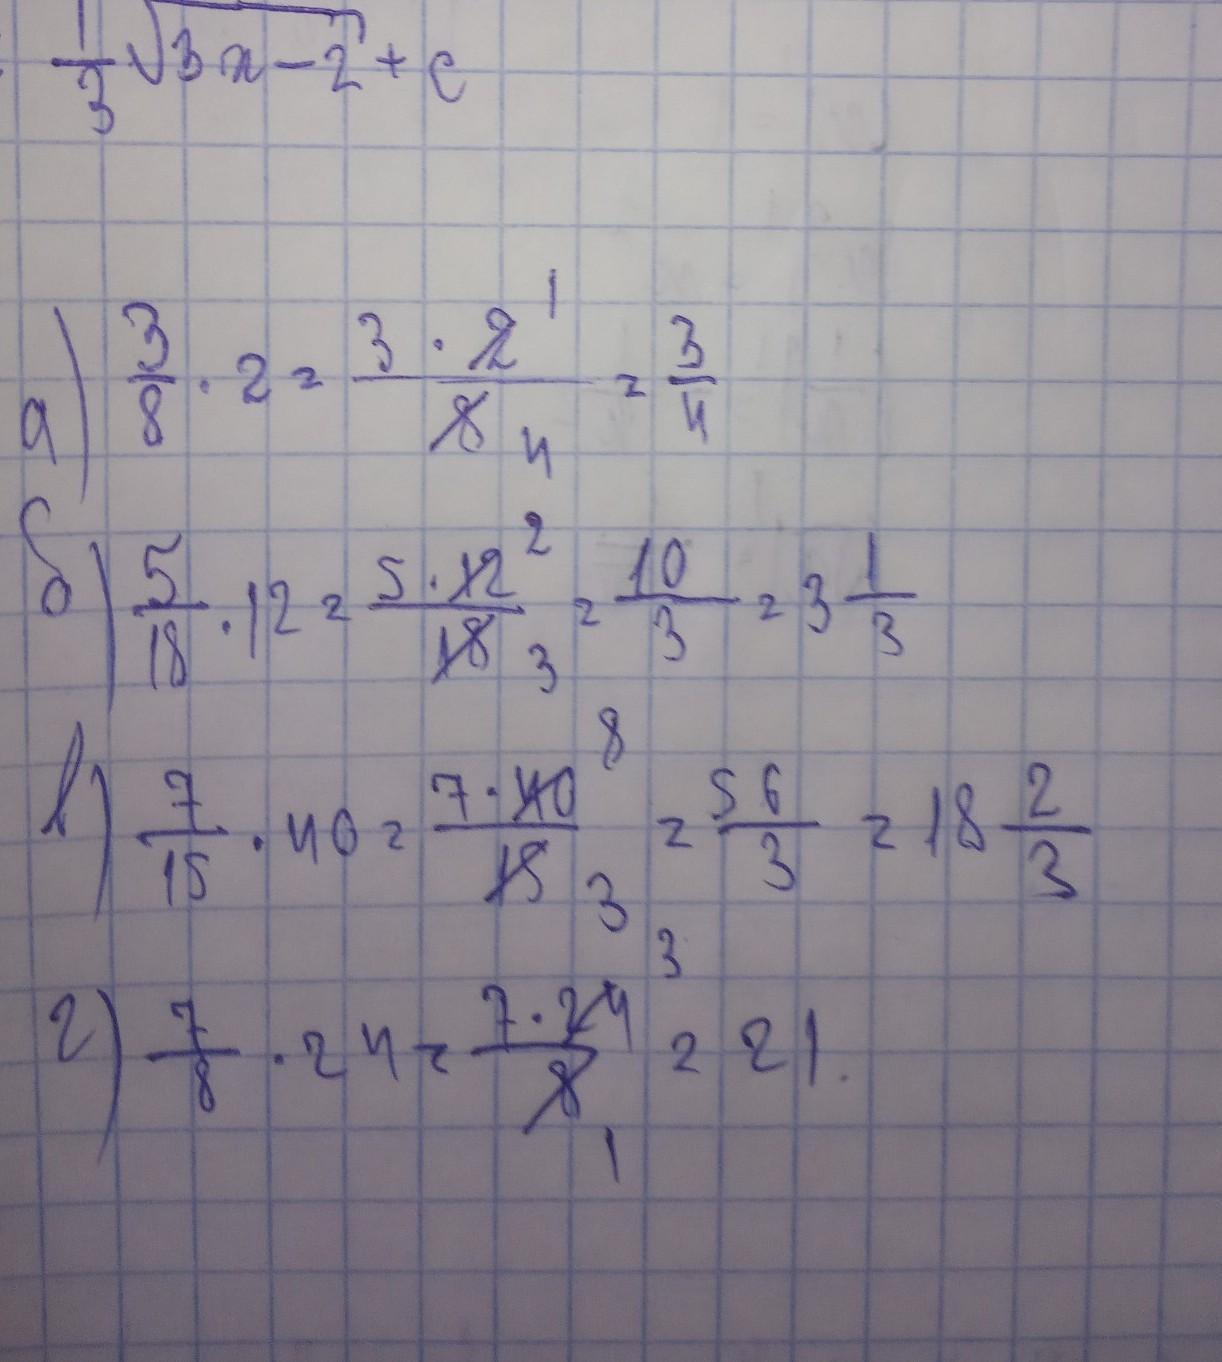 1/3 √3x-2 + c
а) 3/8 · 2 = 3 · 2 1 / 8 4 = 3/4
б) 5/18 · 12 = 5 · 12 2 / 18 3 = 10/3 = 3 1/3
в) 7/15 · 40 = 7 · 40 8 / 15 3 = 56/3 = 18 2/3
г) 7/8 · 24 = 7 · 24 3 / 8 1 = 21.